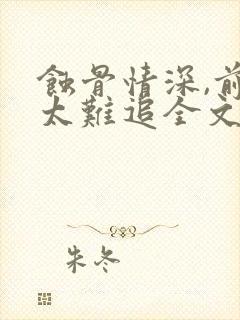 蝕骨情深,前
太難追全文
朱冬